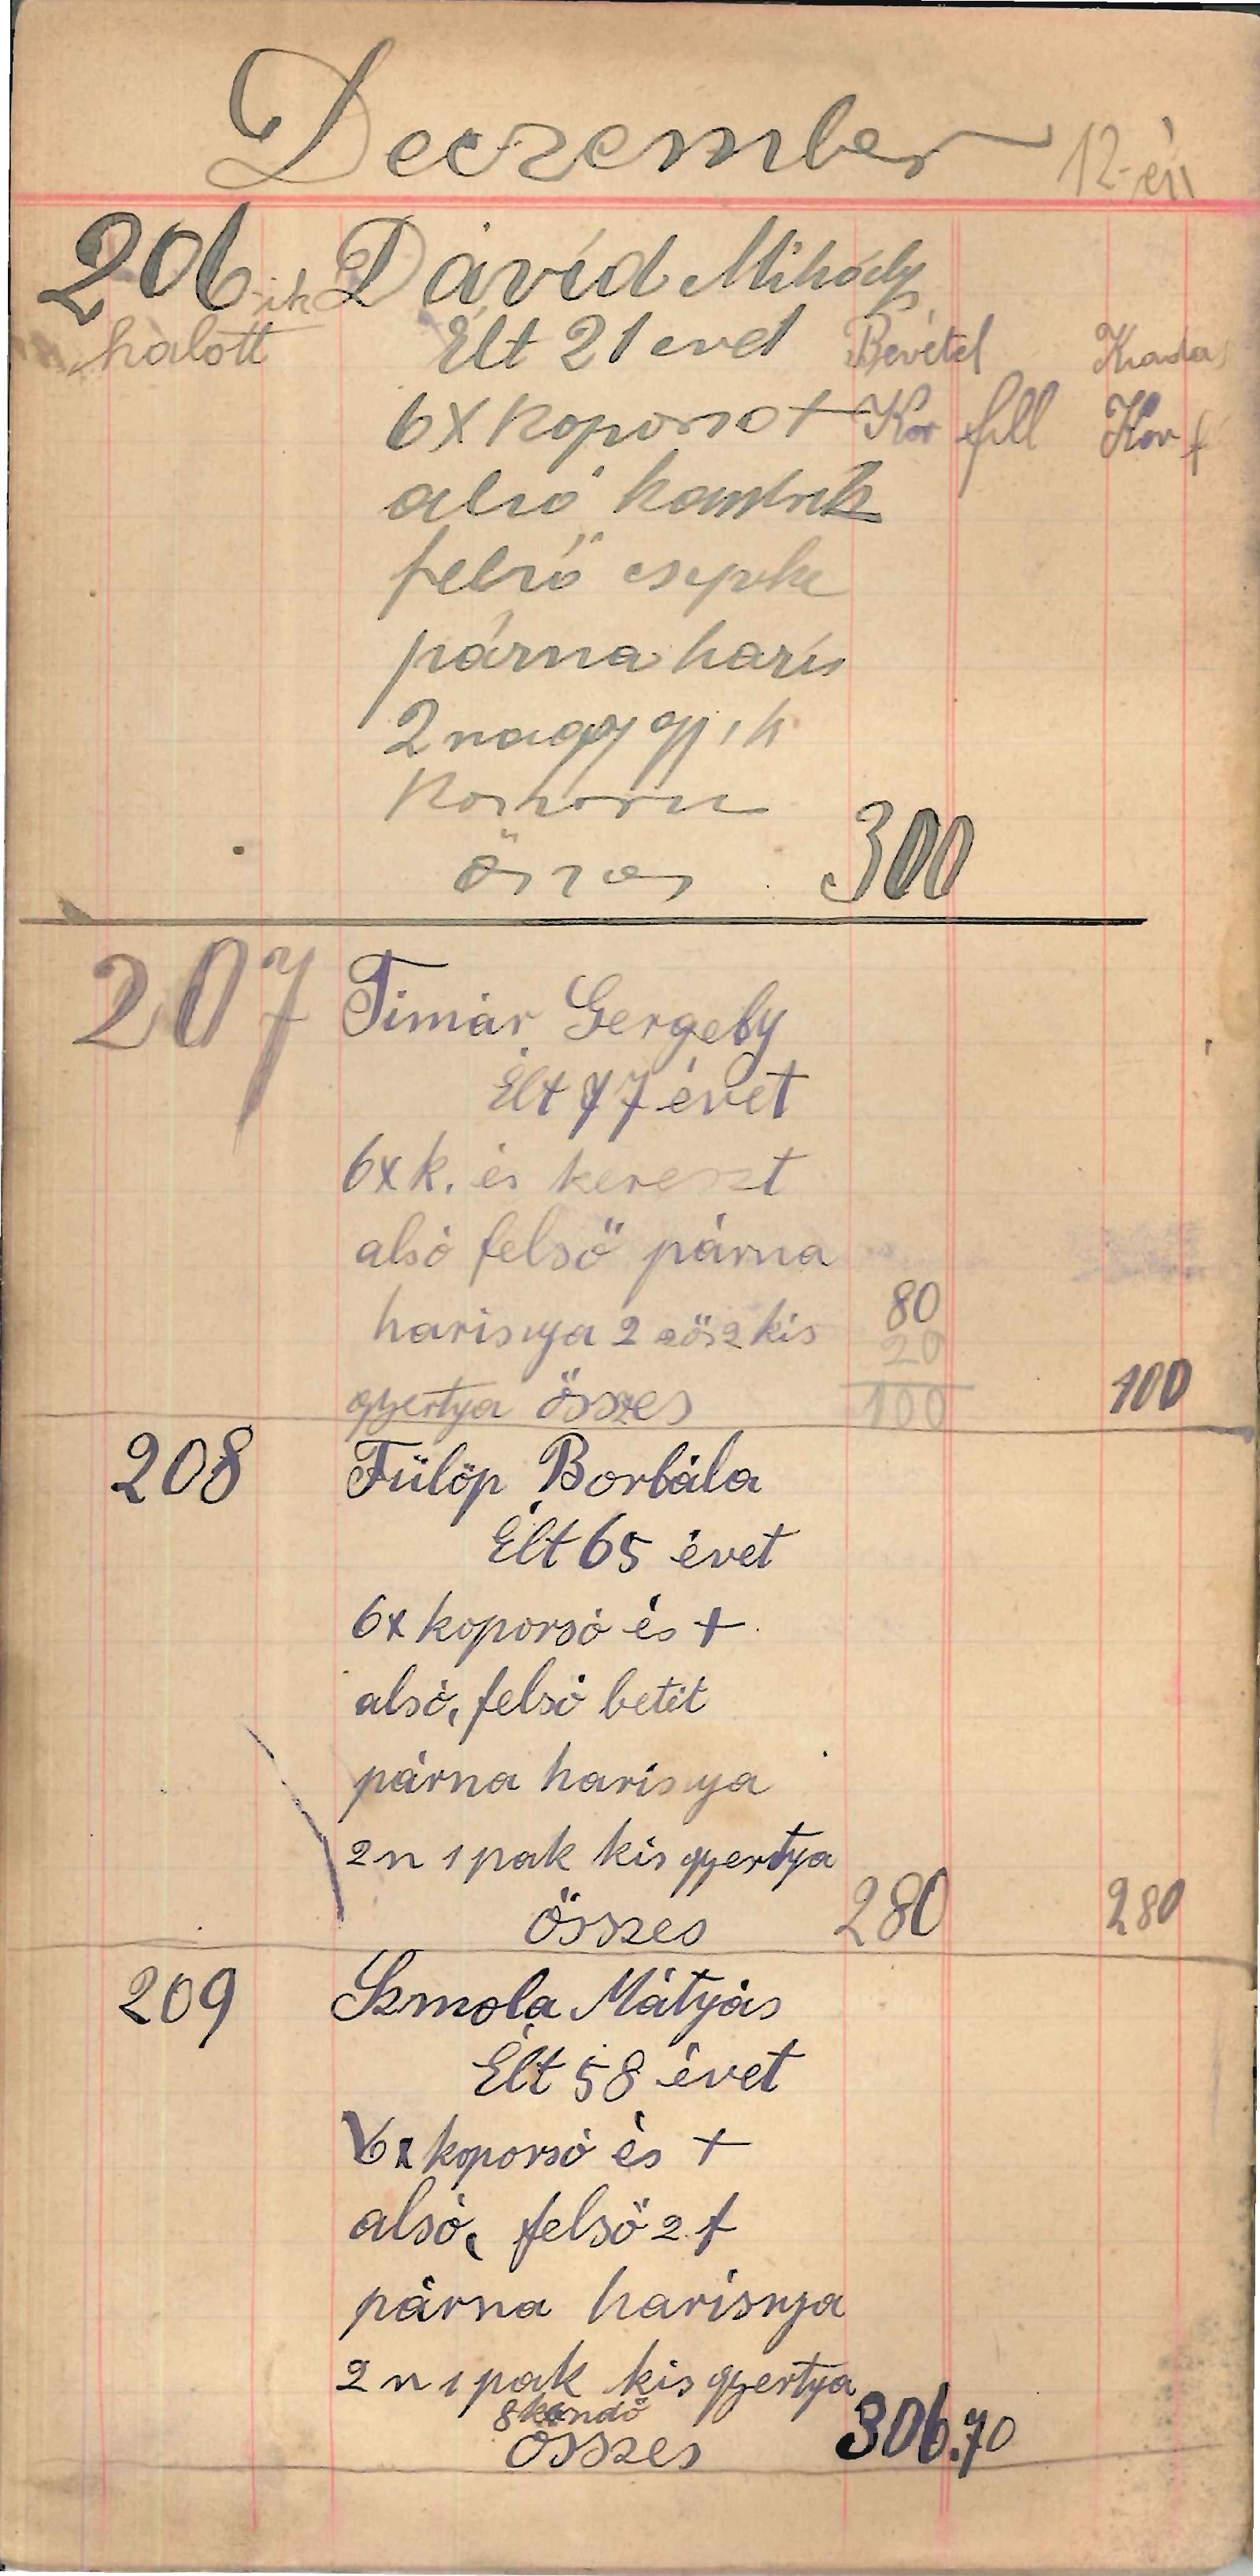 Deczember 12-én
206-ik Dávid Mihály
halott Élt 21 évet Bevétel Kiadás
6x koporsó + Kor fill Kor f
alsó
felső csipke
párna haris
2 nagy gy, k
Koszoru
összes 300
207 Timár Gergely
Élt 77 évet
6x k. és kereszt
alsó felső párna
80
harisnya 2 kis
20
gyertya összes 100 100
208 Fülöp Borbála
Élt 65 évet
6x koporsó és +
alsó, felső betét
párna harisnya
2 n 1 pak kis gyertya
összes 280 280
209 Szmola Mátyás
Élt 58 évet
6x koporsó és +
alsó, felső 2 f
párna harisnya
2 n 1 pak kis gyertya
8 kendő
összes 306.70